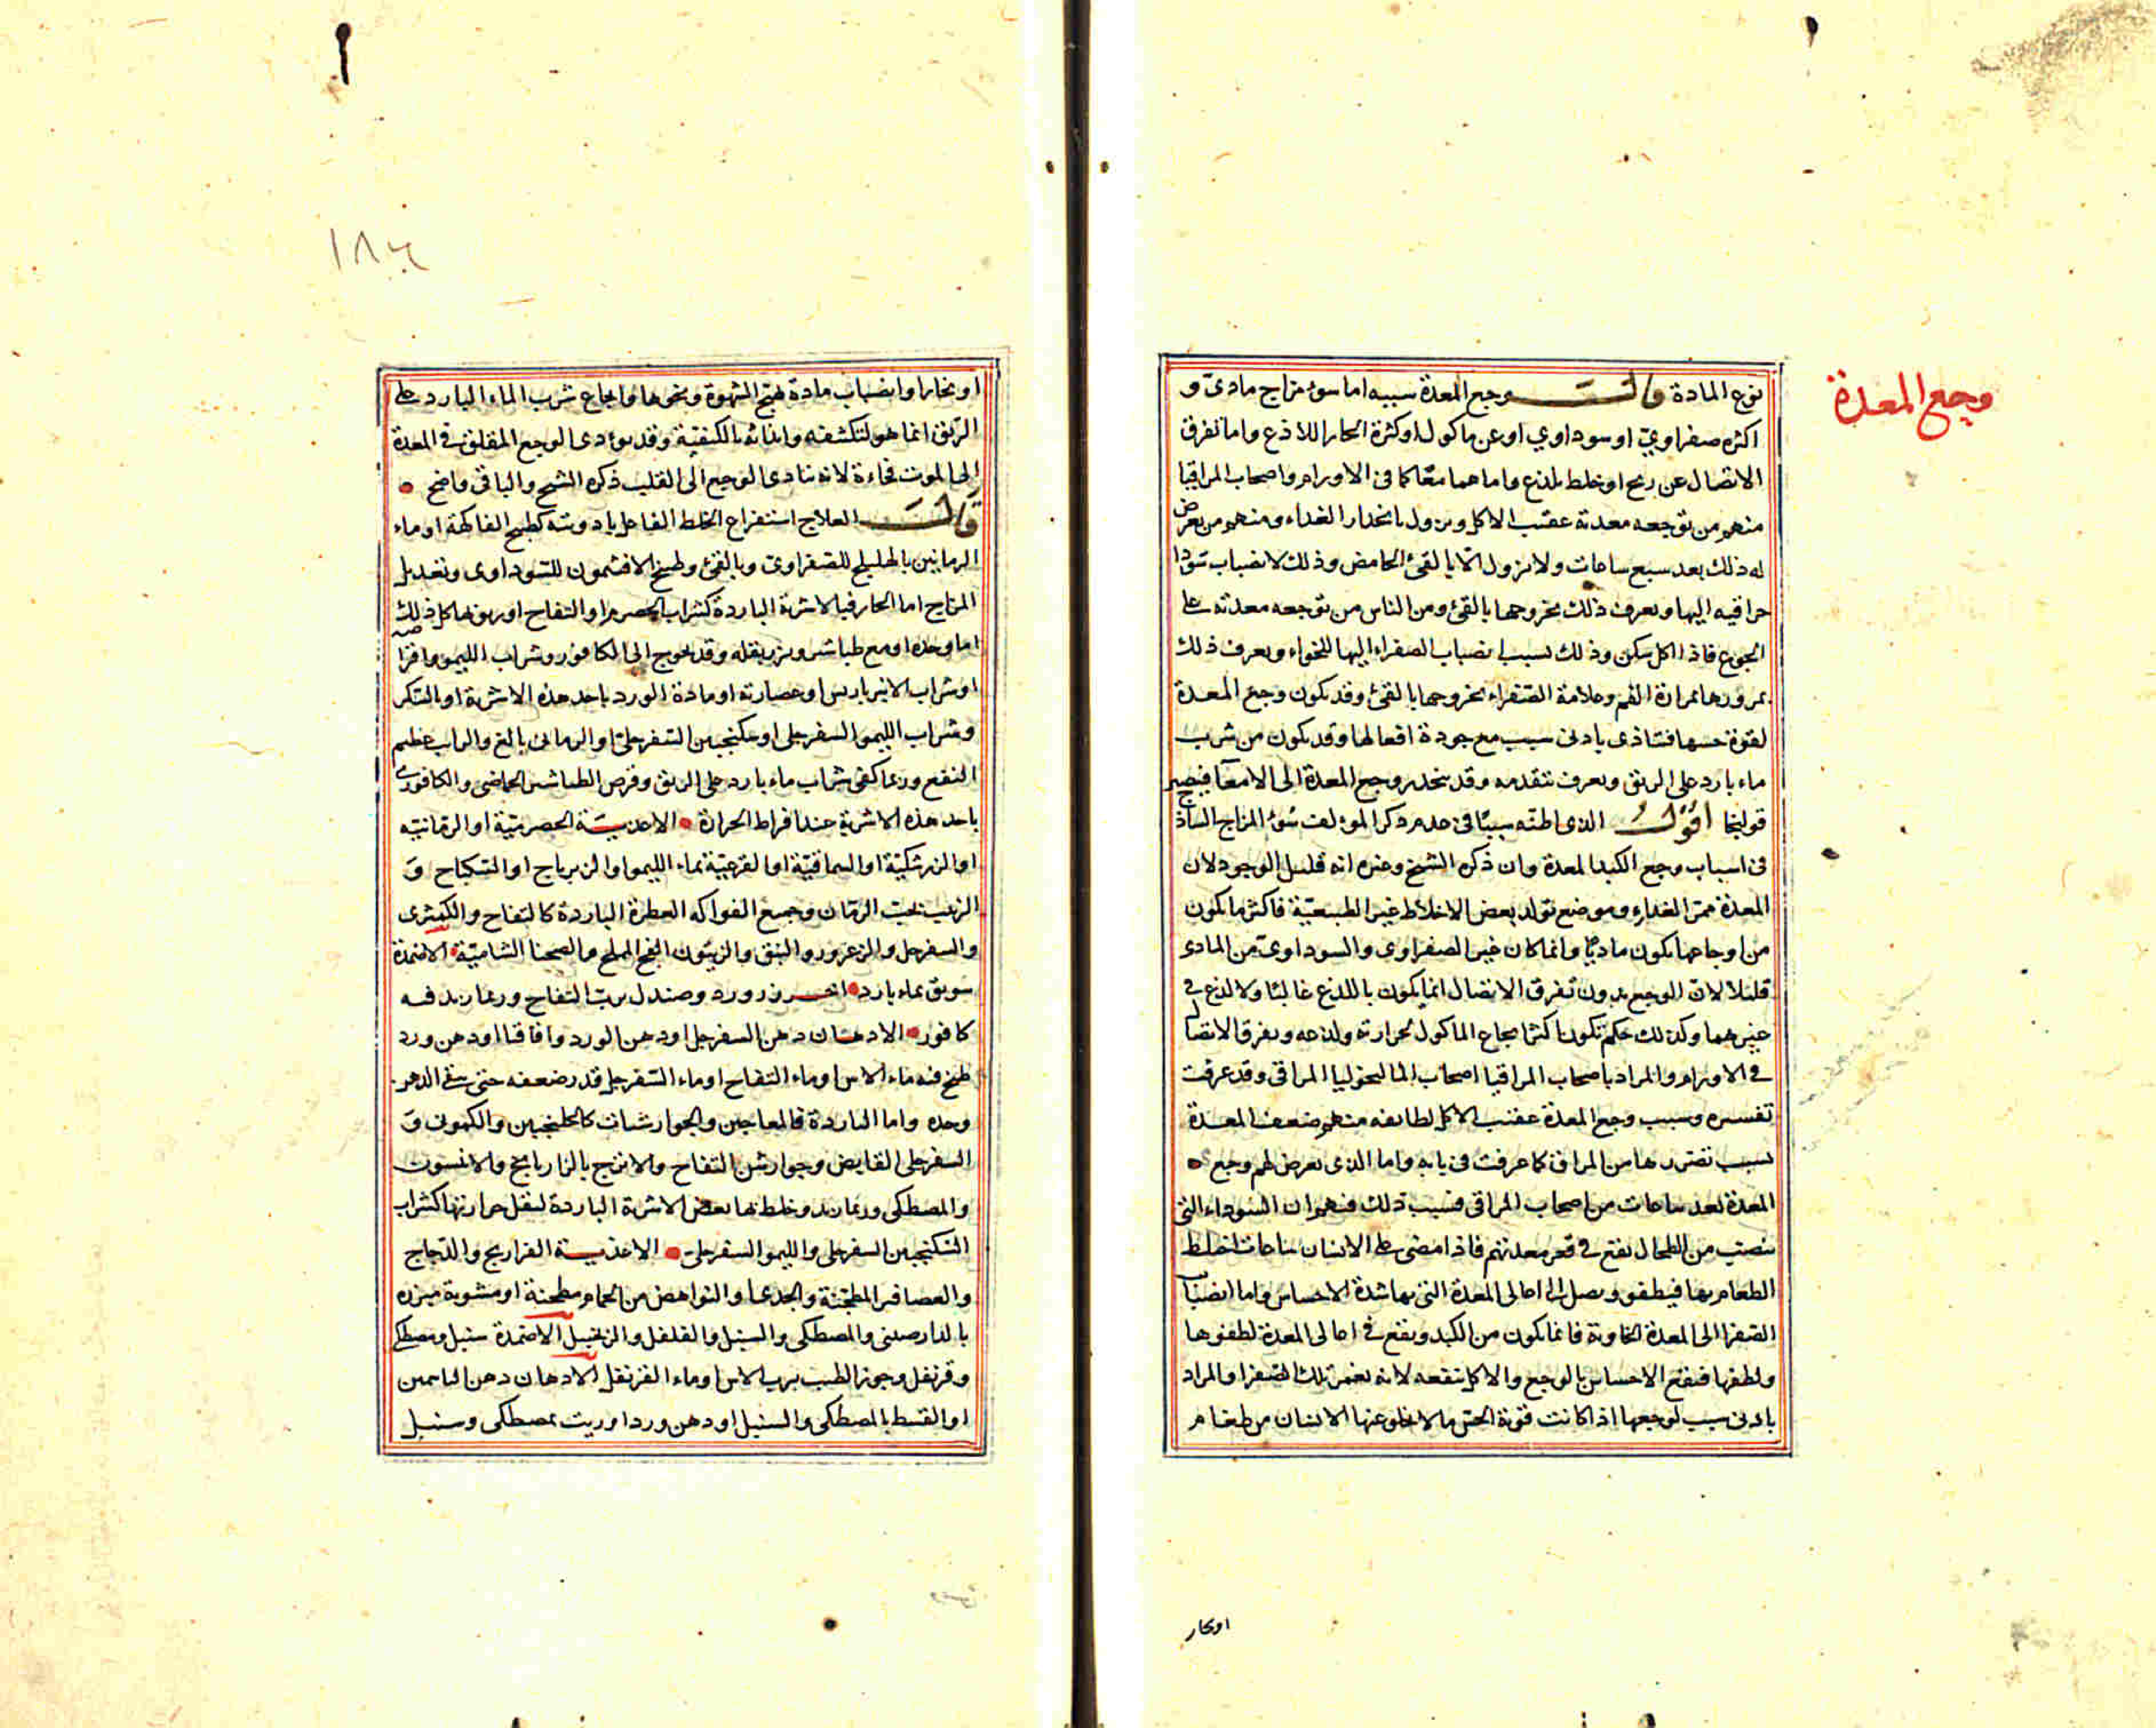 وجع المعدة
نوع المادة قالت وجع المعدة سببه اما سوء مزاج مادي و
اكثره صفراوي او سوداوي او عن ماكول او كثرة الحار اللاذع واما تفرق
الاتصال عن ريح او خلط يلذع واما هما معا كما في الاورام واصحاب المراقيا
منهم من توجعه معدته عقب الاكل ويزول بانحدار الغداء ومنهم من يعرض
له ذلك بعد سبع ساعات ولا يزول الا بالقئ الحامض وذلك لانصباب سودا
مراقيه اليها ويعرف ذلك بخروجها بالقئ ومن الناس من توجعه معدته على
الجوع فاذا اكل سكن وذلك لسبب انصباب الصفراء اليها للخواء ويعرف ذلك
بمرورها مرارة الفم وعلامة الصفراء بخروجها بالقئ وقد يكون وجع المعدة
لقوة حسها فتتاذى بادنى سبب مع جودة افعالها وقد يكون من شرب
ماء بارد على الريق ويعرف بتقدمه وقد ينحدر وجع المعدة الى الامعا فيصير
قولنجا اقول الذي اظنه سببا في عدم ذكر المؤلف سوء المزاج الساذج
في اسباب وجع الكبد المعدة وان ذكره الشيخ وغيره انه قليل الوجود لان
المعدة ممر الغداء وموضع تولد بعض الاخلاط غير الطبيعية فاكثر ما يكون
من اوجاعها يكون ماديا وانما كان غير الصفراوي والسوداوي من المادي
قليلا لان الوجع بدون تفرق الاتصال انما يكون باللذع غالبا ولا لذع في
غيرهما وكذلك حكم تكون اكثر ايجاع الماكول لحرارته ولذعه وتفرق الاتصال
في الاورام والمراد باصحاب المراقيا اصحاب المالبخوليا المراقي وقد عرفت
تفسيره وسبب وجع المعدة عقب الاكل لطائفه منهم ضعف المعدة
بسبب تضررها من المراق كما عرفت في بابه واما الذي يعرض لهم وجع
المعدة بعد ساعات من اصحاب المراقي فسبب ذلك فيهم ان السوداء التي
تنصب من الطحال تقع في قعر معدتهم فاذا مضى على الانسان ساعات اختلط
الطعام بها فيطفو ويصل الى اعالي المعدة التي بها شدة الاحساس واما انصباب
الصفرا الى المعدة الخاوية فانما يكون من الكبد ويقع في اعالي المعدة لطفوها
ولطفها فيقع الاحساس بالوجع والاكل ينفعه لانه يغمر تلك الصفرا والمراد
بادنى سبب لوجعها اذا كانت قوية الحس ما لا يخلو عنها الانسان من طعام
او بخار
١٨٦
او بخار او انصباب مادة تهيج الشهوة ونحوها وايجاع شرب الماء البارد على
الريق انما هو لتكثيفه وايذائه بالكيفية وقد يؤدي الوجع المقلق في المعدة
الى الموت فجاءة لانه يتادى الوجع الى القلب ذكره الشيخ والباقي واضح
قالت العلاج استفراغ الخلط الفاعل بادويته كطبيخ الفاكهة او ماء
الرمانين بالهليلج للصفراوي وبالقئ وطبيخ الافتيمون للسوداوي وتعديل
المزاج اما الحار فبالاشربة الباردة كشراب الحصرم او التفاح او ربوبها كل ذلك
اما وحده او مع طباشير وبزر بقلة وقد يحوج الى الكافور وشراب الليمو واقراصه
او شراب الانبرباريس او عصارته او مادة الورد باحد هذه الاشربة او بالسكر
وشراب الليمو السفرجلي او سكنجبين السفرجلي او الرماني بالغ والراب عظيم
النفع وربما كفى شراب ماء بارد على الريق وقرص الطباشير الحماضي والكافوري
باحد هذه الاشربة عند افراط الحرارة الاغذية الحصرمية او الرمانية
او الزرشكية او السماقية او القرعية بماء الليمو او الزيرباج او السكباج و
الزبيب بحب الرمان وجميع الفواكه العطرة الباردة كالتفاح والكمثرى
والسفرجل والزعرور والنبق والزيتون الفج المملح والصحنا الشامية الاضمدة
سويق بماء بارد اخر ورد وصندل برب التفاح وربما زيد فيه
كافور الادهان دهن السفرجل او دهن الورد واقاقيا او دهن ورد
طبخ فيه ماء الاس او ماء التفاح او ماء السفرجل قدر ضعفه حتى بقي الدهن
وحده واما الباردة فالمعاجين والجوارشات كالجلنجبين والكموني و
السفرجلي القابض وجوارشن التفاح والاترج بالرازيانج والانيسون
والمصطكى وربما زيد وخلط بها بعض الاشربة الباردة لتقل حرارتها كشراب
السكنجبين السفرجلي والليمو السفرجلي الاغذية الفراريج والدجاج
والعصافير المطجنة والجدى او النواهض من الحمام مطجنة او مشوية مبزره
بالدارصيني والمصطكى والسنبل والفلفل والزنجبيل الاضمدة سنبل ومصطكى
وقرنفل وجوز الطيب برب الاس او ماء القرنفل الادهان دهن الياسمين
او القسط بالمصطكى والسنبل او دهن ورد او زيت بمصطكى وسنبل